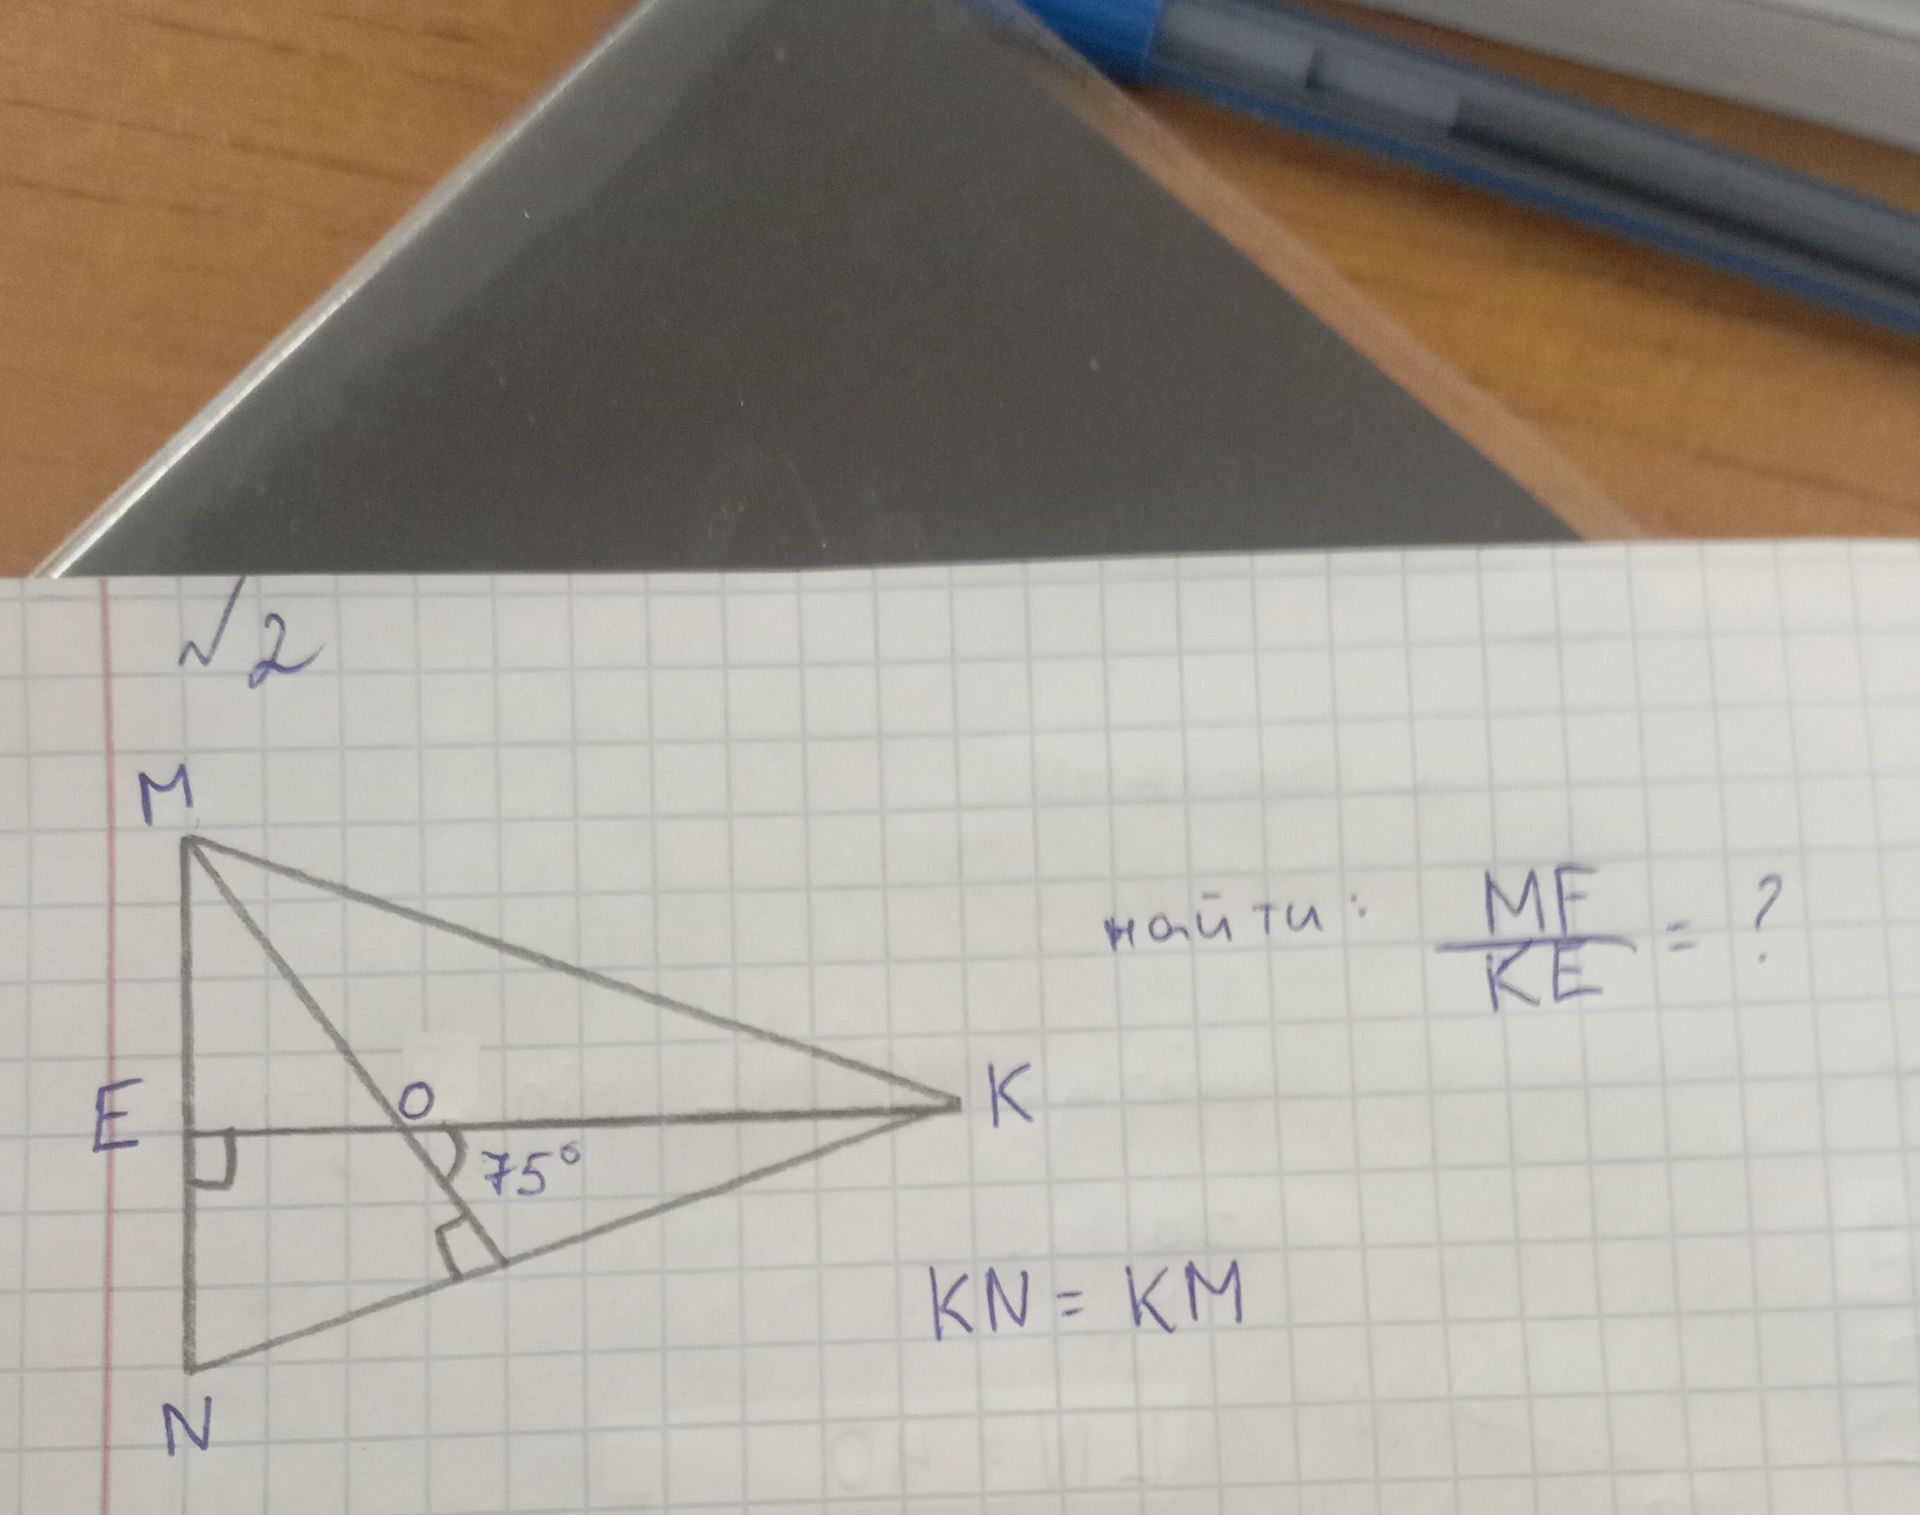 √2
M
найти: MF/KE = ?
E
O
K
75°
KN = KM
N